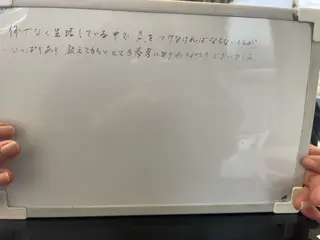 何げなく生活している中で、気をつけなければならないことが
いっぱいあり 教えてもらい とても参考になりありがとうございました。